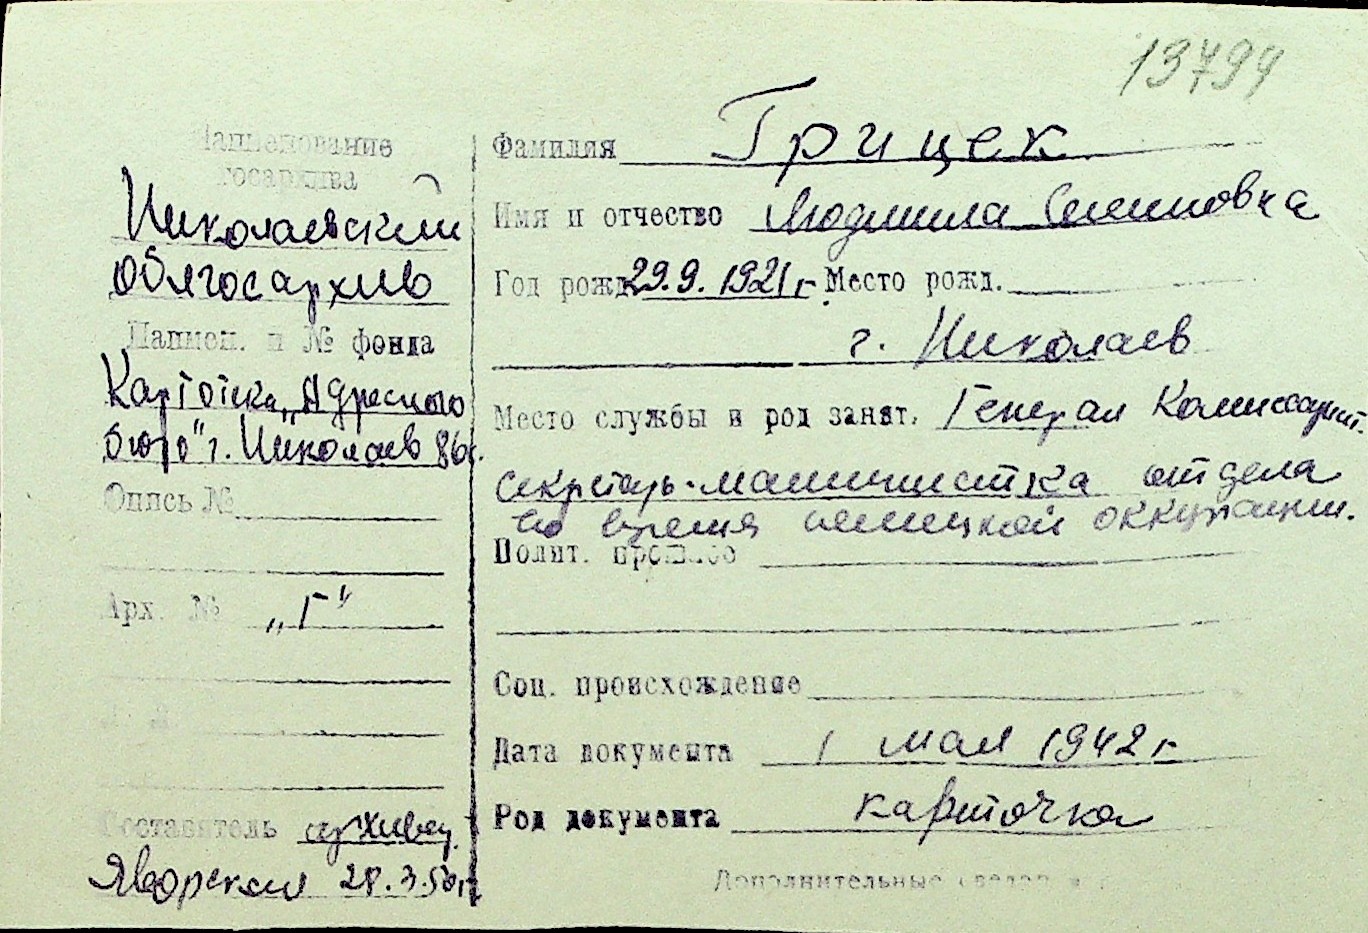 13794
Наименование
госархива
Николаевский
облгосархив
Наимен. и № фонда
Картотека „Адресного
бюро" г. Николаев
Опись №
Арх. № „Г"
Составитель архивец
Яворский 28.3.50г.
Фамилия Грицек
Имя и отчество Людмила Семеновна
Год рожд. 29.9.1921г. Место рожд.
г. Николаев
Место службы и род занят. Генерал Комиссариат.
секретарь-машинистка отдела
во время немецкой оккупации.
Полит. прошлое
Соц. происхождение
Дата документа 1 мая 1942 г.
Род документа карточка
Дополнительные